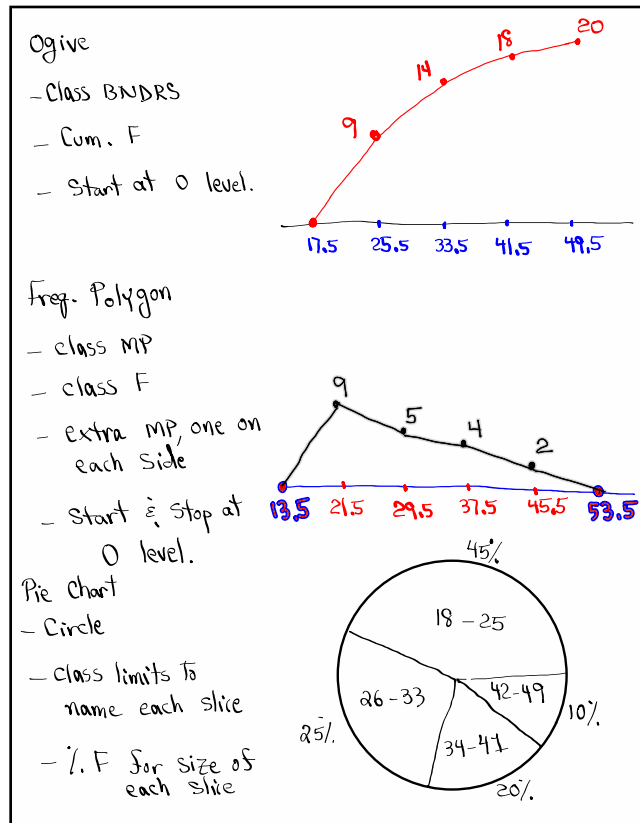 Ogive
- Class BNDRS
- Cum. F
- Start at 0 level.
9 14 18 20
17.5 25.5 33.5 41.5 49.5
Freq. Polygon
- class MP
- class F
- extra MP, one on
each side
- Start & Stop at
0 level.
9 5 4 2
13.5 21.5 29.5 37.5 45.5 53.5
Pie Chart
- Circle
- Class limits to
name each slice
- %F for size of
each slice
45%
18-25
26-33
42-49
34-41
25%
10%
20%